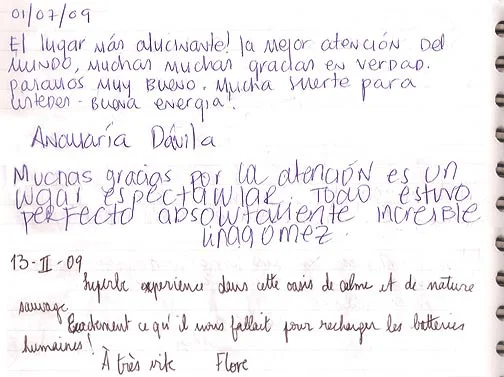 01/07/09
El lugar más alucinante! la mejor atención Del
MUNDO, muchas muchas gracias en verdad.
pasamos muy bueno. Mucha suerte para
ustedes - buena energía!
Anamaría Dávila
Muchas gracias por la atención es un
lugar espectacular. Todo estuvo
perfecto absolutamente increible
linagomez.
13-II-09
Superbe experience dans cette oasis de calme et de nature
sauvage
Exactement ce qu'il nous fallait pour recharger les batteries
humaines!
À très vite Flore